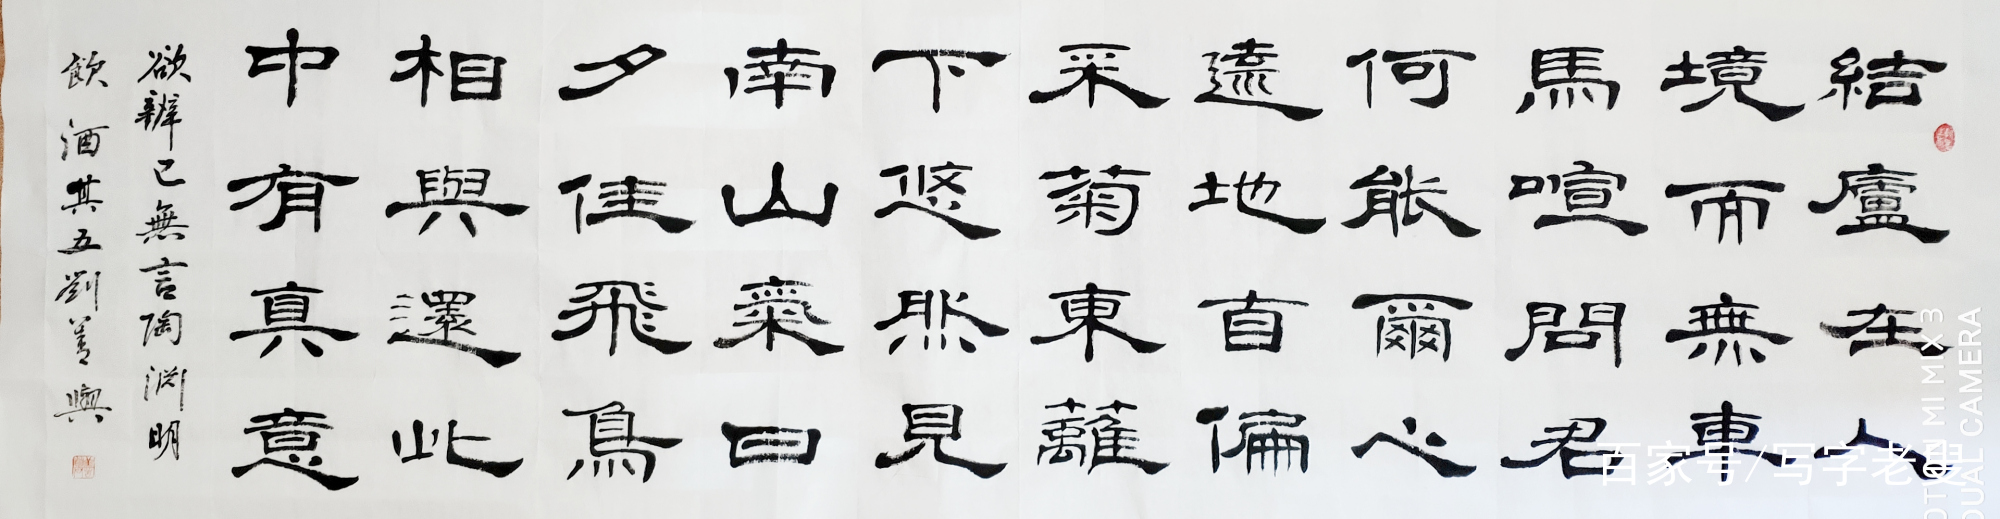 結廬在人
境而無車
馬喧問君
何能爾心
遠地自偏
采菊東蘺
下悠然見
南山氣日
夕佳飛鳥
相與還此
中有真意
欲辨已無言陶渊明
飲酒其五劉善興
百家号/写字老叟
MI MIX 3
DUAL CAMERA